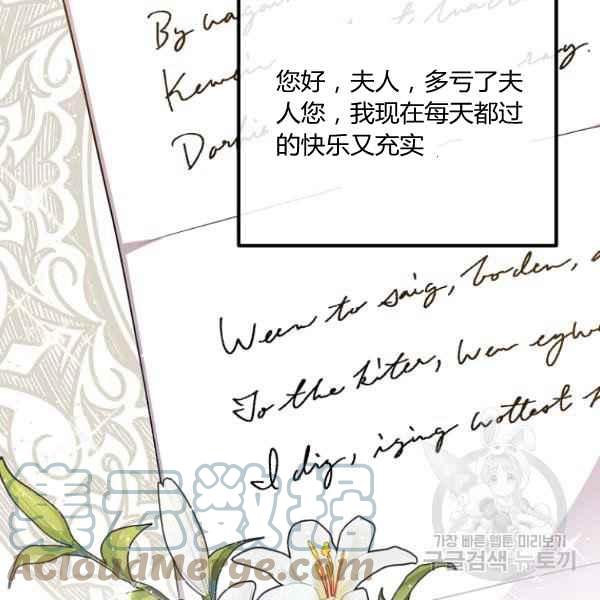 By
您好，夫人，多亏了夫
人您，我现在每天都过
的快乐又充实
Ween to saig, borden,
To the kiter, wen
I dig, iging wottest
集云数据
acloudmerge.com
가장 빠른 웹툰 미리보기
구글검색 뉴토끼